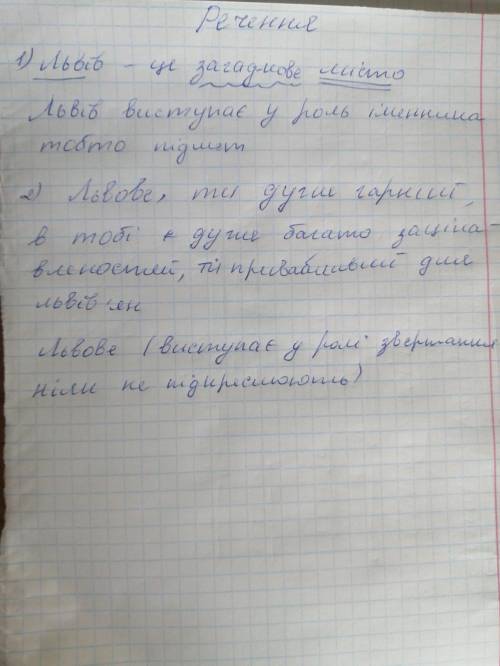 Речення
1) Львів - це загадкове місто
Львів виступає у роль іменника
тобто підмет
2) Львове, ти дуже гарний,
в тобі є дуже багато заціка-
вленостей, ти привабливий для
львів'ян
Львове (виступає у ролі звертання
ніли не підкреслюють)